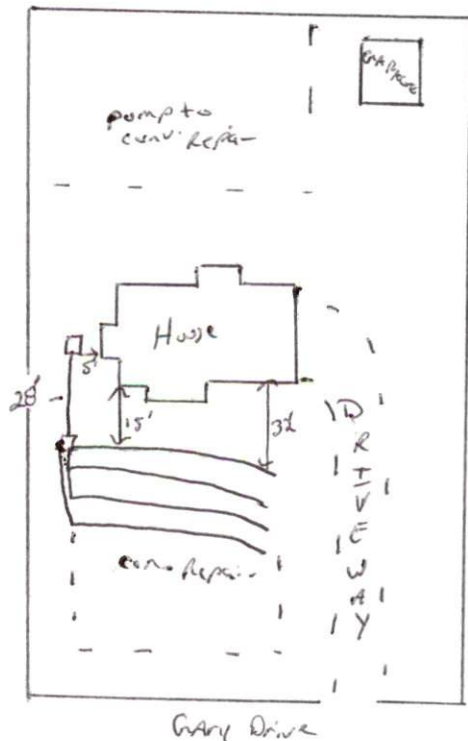 GARAGE
pump to
conv. Repair
House
5'
28'
15'
32
DRIVEWAY
conv. Repair
Gary Drive